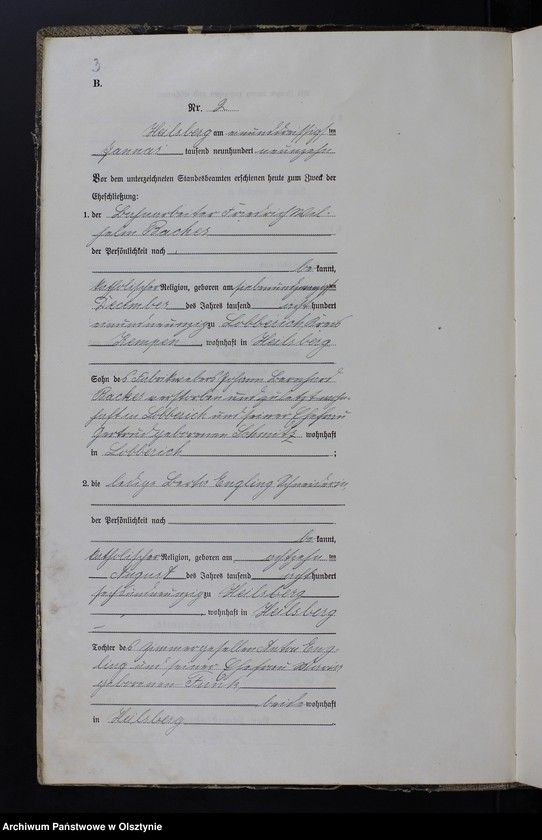 3
B.
Nr. 2
Heilsberg am neununddreißigsten
Januar tausend neunhundert neunzehn
Vor dem unterzeichneten Standesbeamten erschienen heute zum Zweck der
Eheschließung:
1. der Friedrich Wil-
helm Backes
der Persönlichkeit nach
be kannt,
katholischer Religion, geboren am siebenundzwanzigsten
Dezember des Jahres tausend acht hundert
neunundneunzig zu Lobberich Kreis
Kempen, wohnhaft in Heilsberg
Sohn des Fabrikwebers Johann Bernhard
Backes verstorben und zuletzt wohn-
haft in Lobberich und seiner Ehefrau
Gertrud geborenen Schmitz wohnhaft
in Lobberich ;
2. die ledige Berta Engling Schneiderin,
der Persönlichkeit nach
be kannt,
katholischer Religion, geboren am achtzehn ten
August des Jahres tausend acht hundert
sechsundneunzig zu Heilsberg
, wohnhaft in Heilsberg
Tochter des Zimmergesellen Anton Eng-
ling und seiner Ehefrau
geborenen Funk
beide wohnhaft
in Heilsberg .
Archiwum Państwowe w Olsztynie